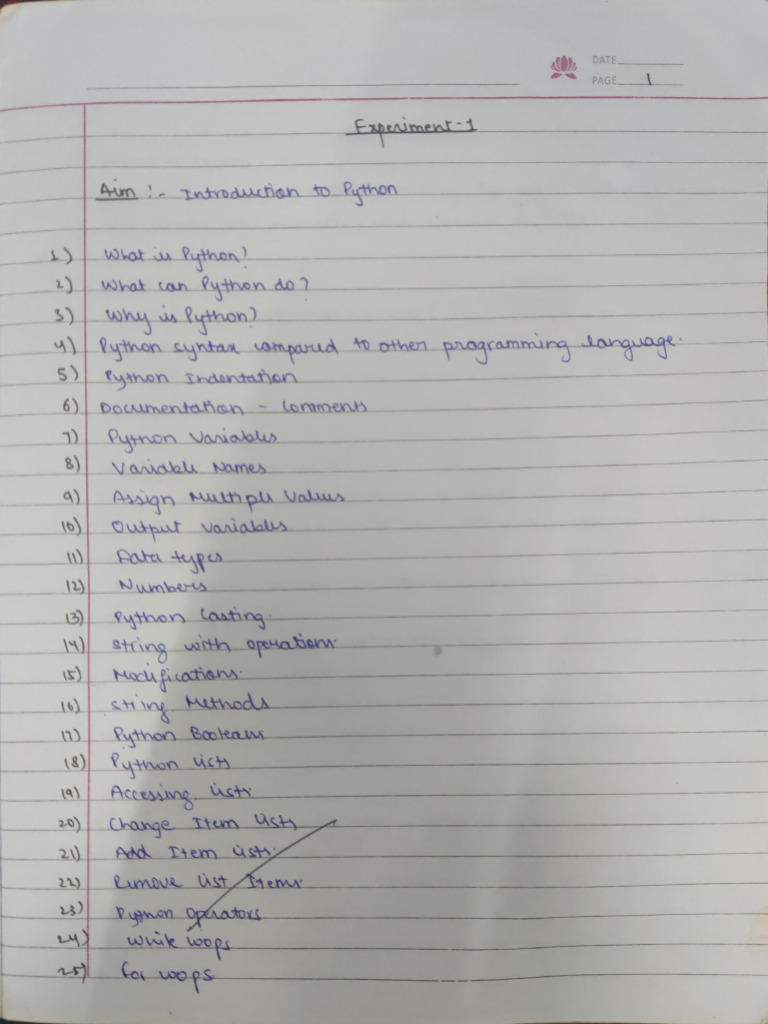 DATE
PAGE 1
Experiment-1
Aim :- Introduction to Python
1) What is Python?
2) What can Python do?
3) Why is Python?
4) Python syntax compared to other programming language.
5) Python Indentation
6) Documentation - Comments
7) Python Variables
8) Variable Names
9) Assign Multiple Values
10) Output Variables
11) Data types
12) Numbers
13) Python Casting.
14) String with operations.
15) Modifications.
16) String Methods
17) Python Booleans
18) Python Lists
19) Accessing Lists.
20) Change Item Lists
21) Add Item Lists.
22) Remove List Items.
23) Python Operators
24) While loops
25) For loops